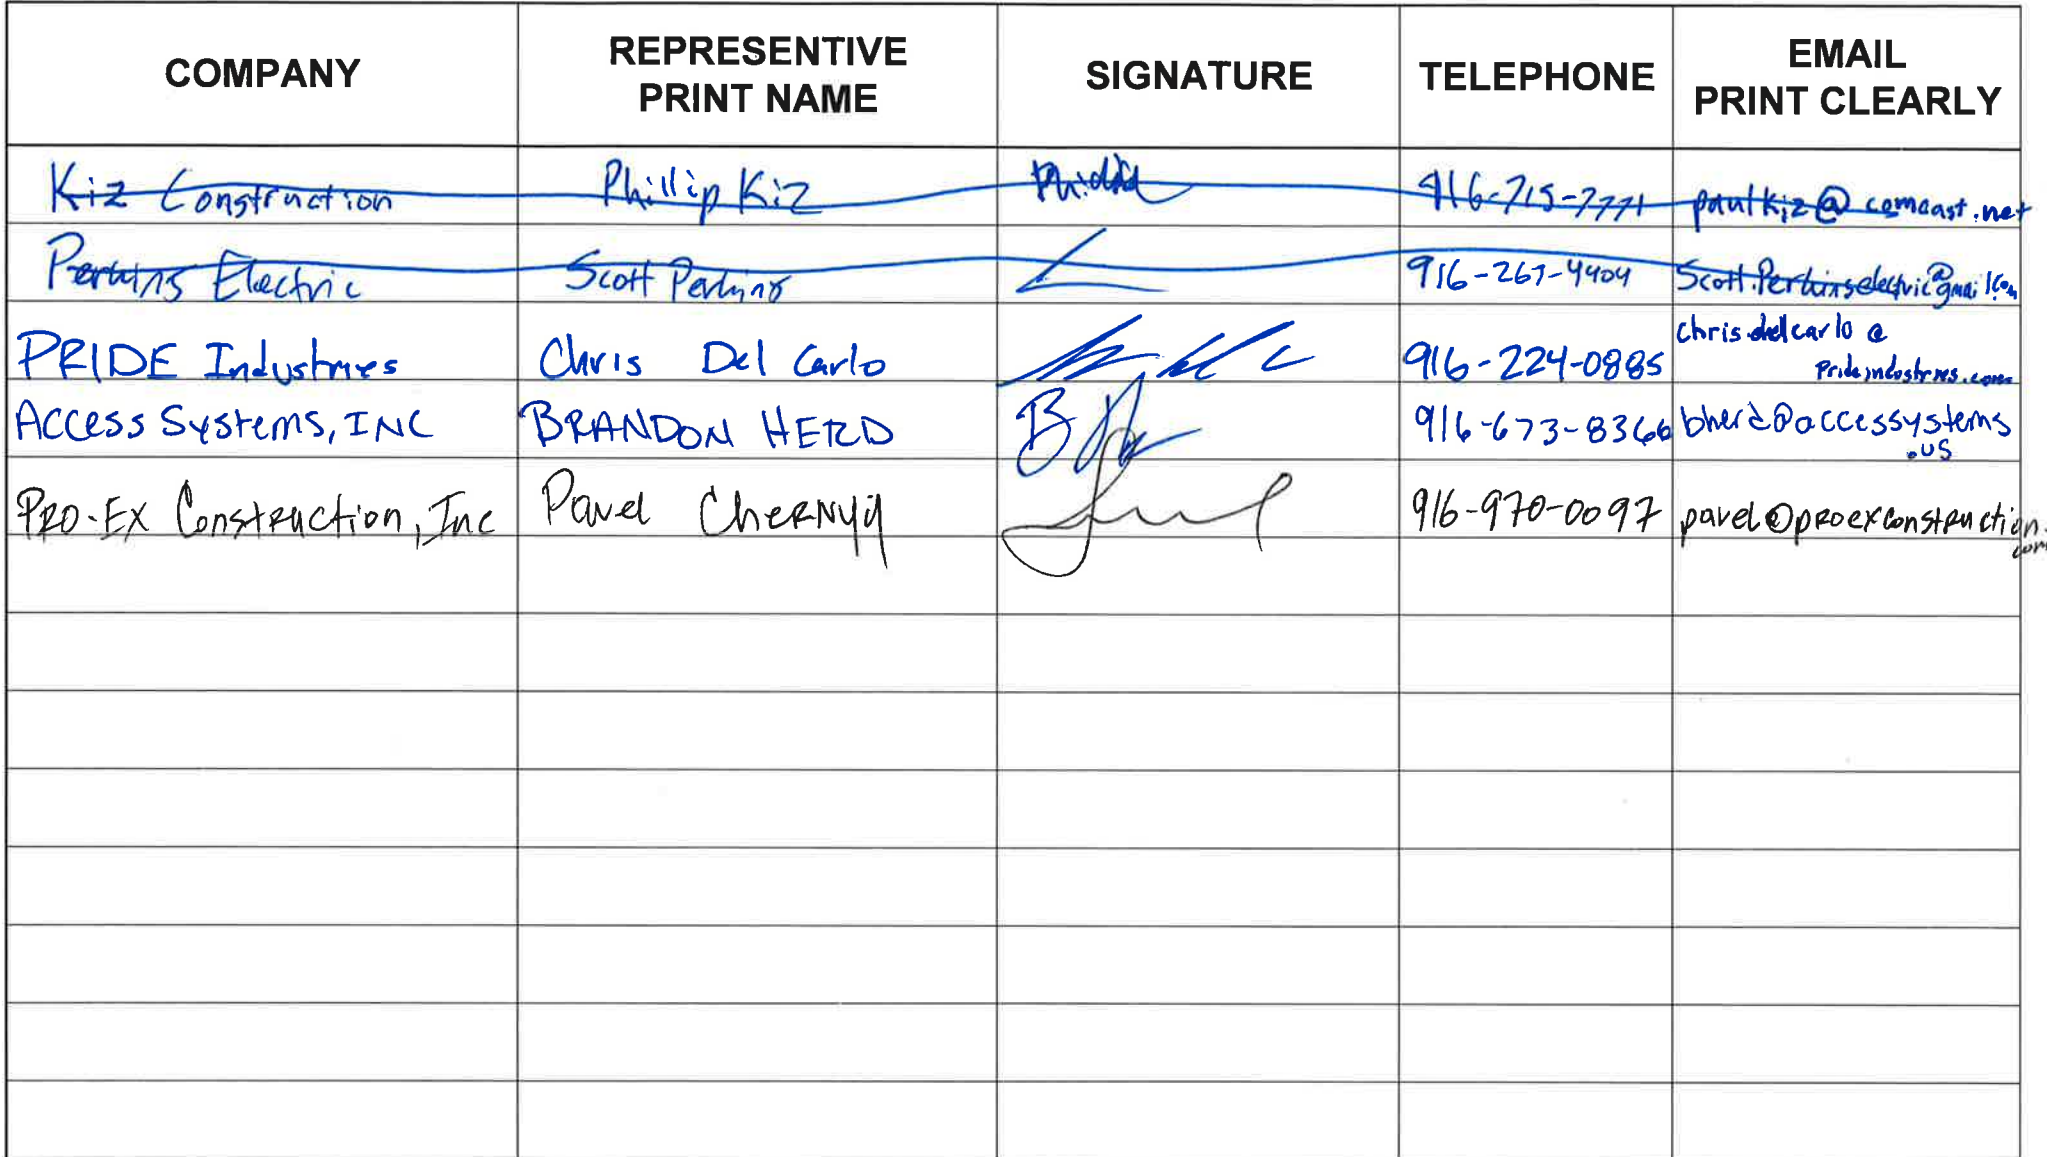 COMPANY
REPRESENTIVE
PRINT NAME
SIGNATURE
TELEPHONE
EMAIL
PRINT CLEARLY
Kiz Construction Phillip Kiz 916-715-7771 paulkiz@comcast.net
Perkins Electric Scott Perkins 916-267-4404 Scott.Perkinselectric@gmail.com
PRIDE Industries Chris Del Carlo 916-224-0885 chris.delcarlo@
prideindustries.com
Access Systems, INC BRANDON HERD 916-673-8366 bherd@accessystems
.us
PRO-EX Construction, Inc Pavel Chernyy 916-970-0097 pavel@proexconstruction.
com